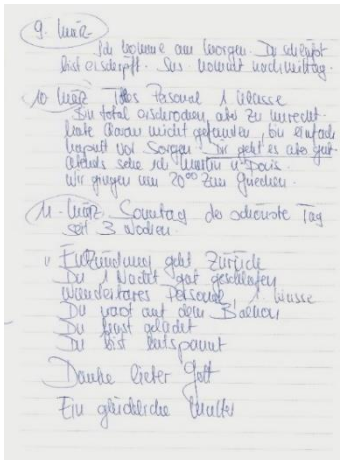 9. März
Ich komme am Morgen. Du schläfst
bist erschöpft. Sus kommt nachmittag.
10. März Personal 1 Klasse
Bin total erschrocken, aber zu unrecht.
hatte daran nicht gefunden, bin einfach
kaputt vor Sorgen. Dir geht es aber gut.
abends sehe ich Martin u. Doris.
wir gingen um 20⁰⁰ zum Griechen.
11. März Sonntag der schönste Tag
seit 3 Wochen.
Entzündung geht zurück
Du 1 Nacht gut geschlafen
Wunderbares Personal, 1. Klasse
Du warst auf dem Balkon
Du hast gelacht
Du bist entspannt
Danke lieber Gott
Ein glückliche Mutter